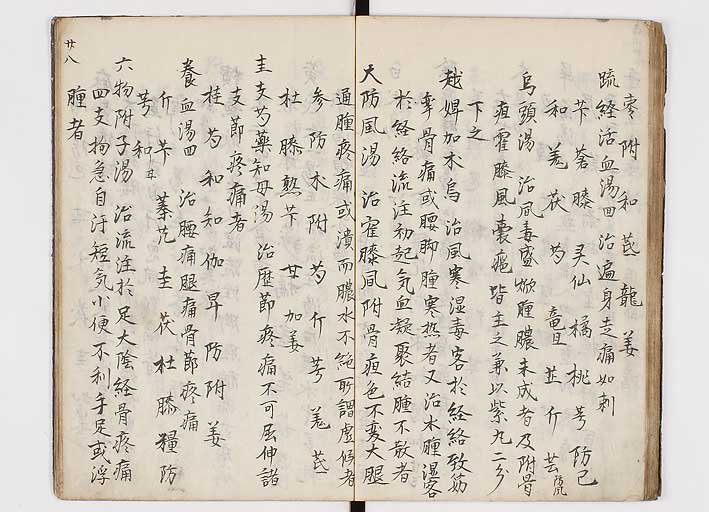 棗附和芪龍姜
疏経活血湯四 治遍身走痛如刺
芐蒼膝 灵仙橘桃芎防己
和羌茯芍 竜旦芷介芸
烏頭湯 治風毒盛燉腫膿未成者及附骨
疽霍膝風嚢癰皆主之兼以紫丸二分
下之
越婢加朮烏 治風寒湿毒客於経絡致筋
挛骨痛或腰脚腫寒熱者又治水腫湿客
於経絡流注初起気血凝聚結腫不散者
大防風湯 治霍膝風附骨疽色不変大腿
通腫疼痛或潰而膿水不絶所謂虚候者
参防朮附芍介芎羌芪
杜膝熟芐甘 加姜
圭支芍薬知母湯 治歴節疼痛不可屈伸諸
支節疼痛者
桂芍和知伽早防附姜
養血湯四 治腰痛腿痛骨節疼痛
介芐蓁芃圭茯杜膝糧防
芎和甘
六物附子湯 治流注於足大陰経骨疼痛
四支拘急自汗短気小便不利手足或浮
腫者
廿八